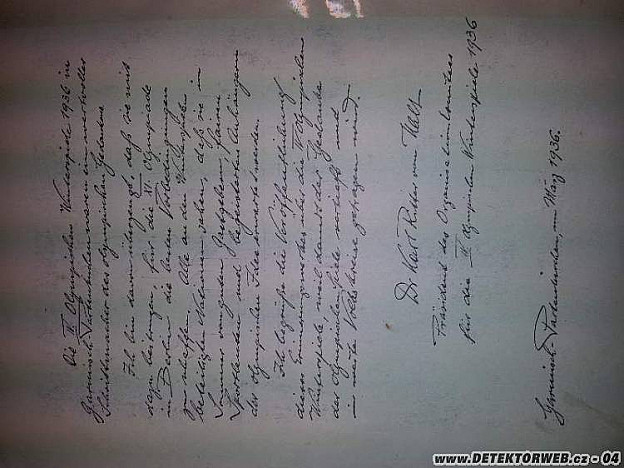 Die IV. Olympischen Winterspiele 1936 in
Garmisch-Partenkirchen waren ein machtvoller
des olympischen Gedankens
Ich bin davon überzeugt, daß sie mit
dazu beitrugen für die XI. Olympiade
in Berlin die besten Vorbedingungen
zu schaffen. Alle an den Winterspielen
beteiligten Nationen haben, daß sie im
Sinne
Sportleuten und begeisterten Anhängern
der olympischen Idee erwartet werden.
Ich begrüße die Veröffentlichung
dieses Erinnerungswerkes über die IV. Olympischen
Winterspiele, weil damit der Gedanke
der Olympischen Spiele vertieft und
in weite Volkskreise getragen wird.
Dr. Karl Ritter von Halt
Präsident des Organisationskomitees
für die IV. Olympischen Winterspiele 1936
Garmisch-Partenkirchen, im März 1936.
www.DETEKTORWEB.cz - 04